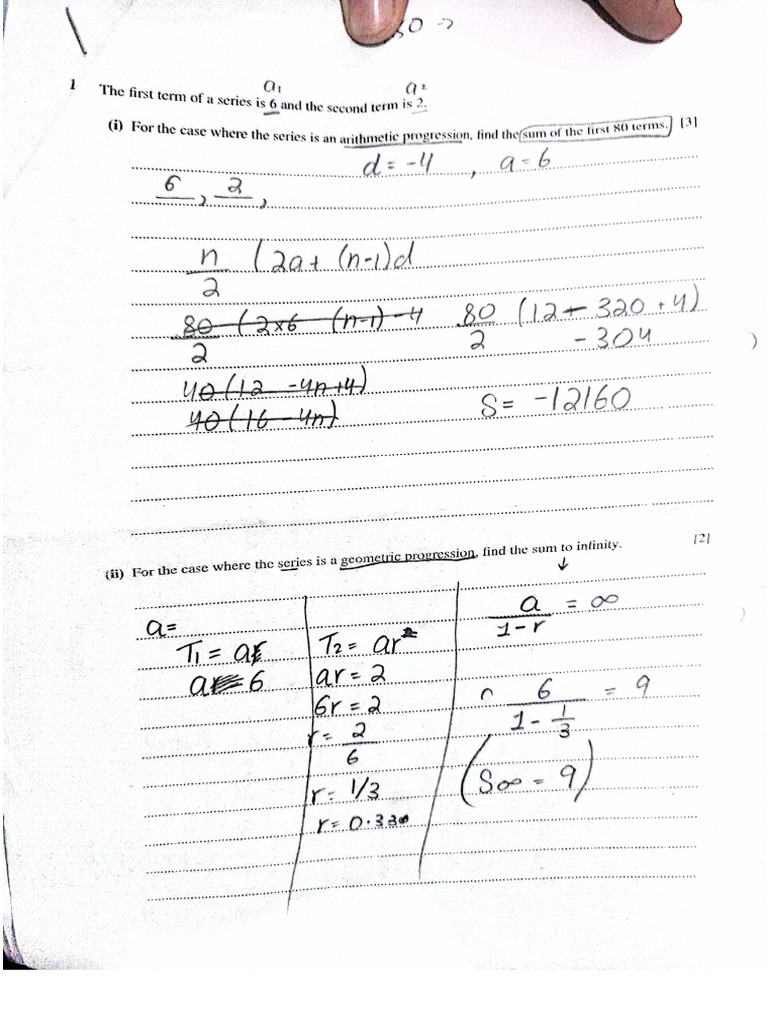 30 →
a₁ a²
1 The first term of a series is 6 and the second term is 2.
(i) For the case where the series is an arithmetic progression, find the sum of the first 80 terms. [3]
d = -4 , a = 6
6 , 2 ,
n/2 (2a + (n-1)d
80/2 (2×6 (n-1) -4
80/2 (12 - 320 + 4)
- 304
40(12 -4n+4)
40(16 - 4n)
S = -12160
(ii) For the case where the series is a geometric progression, find the sum to infinity. [2]
↓
a=
T₁ = ar
a = 6
T₂ = ar
ar = 2
6r = 2
r = 2/6
r = 1/3
r = 0.33
a/(1-r) = ∞
6/(1 - 1/3) = 9
(S∞ = 9)